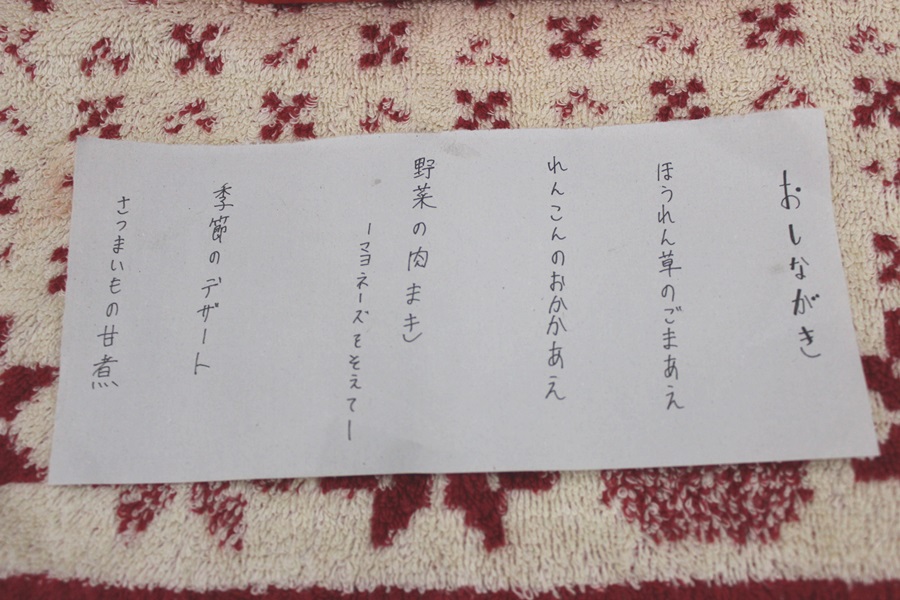 おしながき
ほうれん草のごまあえ
れんこんのおかかあえ
野菜の肉まき
ーマヨネーズをそえてー
季節のデザート
さつまいもの甘煮